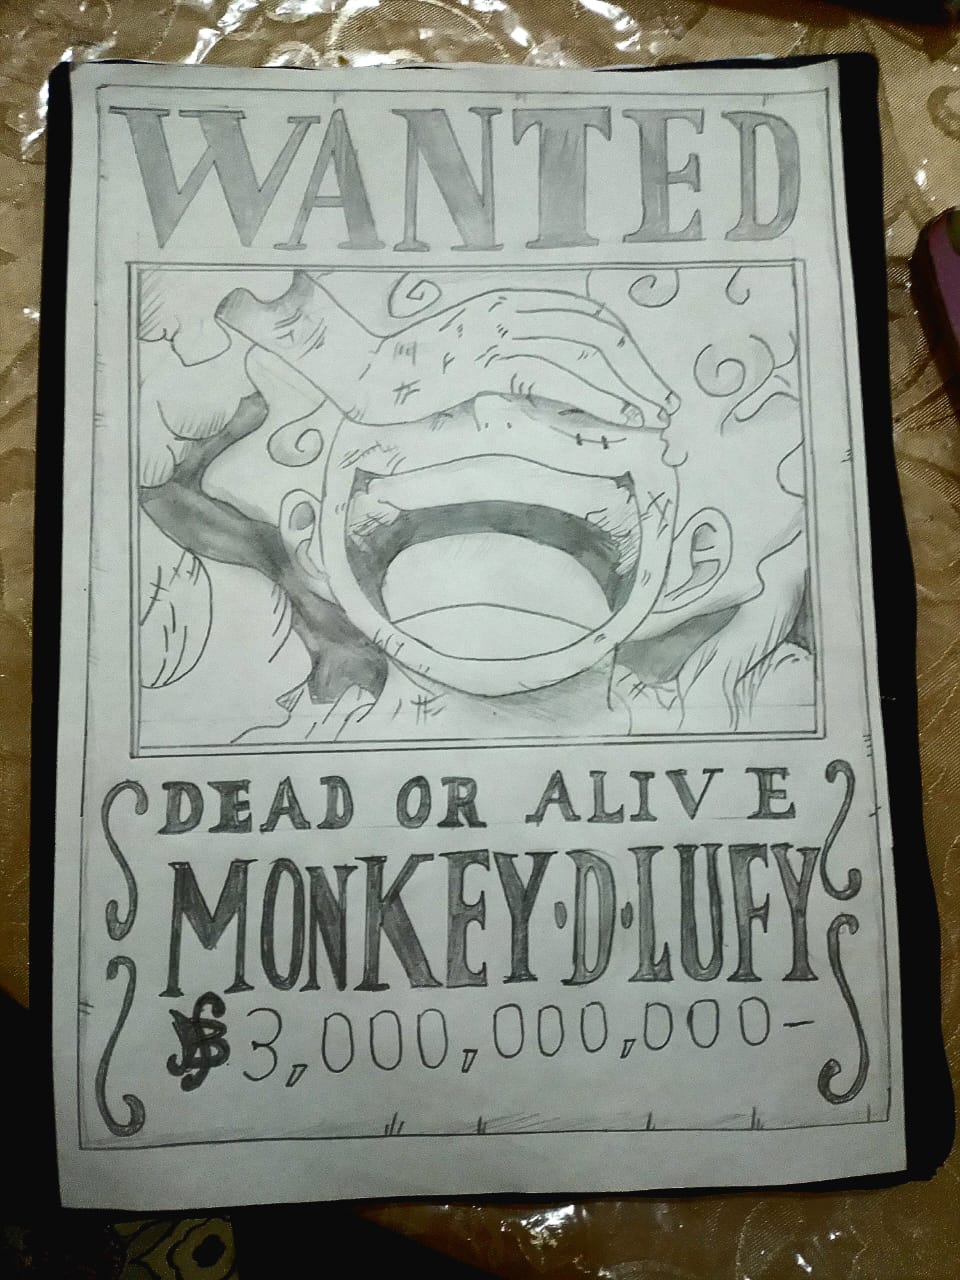 WANTED
DEAD OR ALIVE
MONKEY·D·LUFY
฿3,000,000,000-